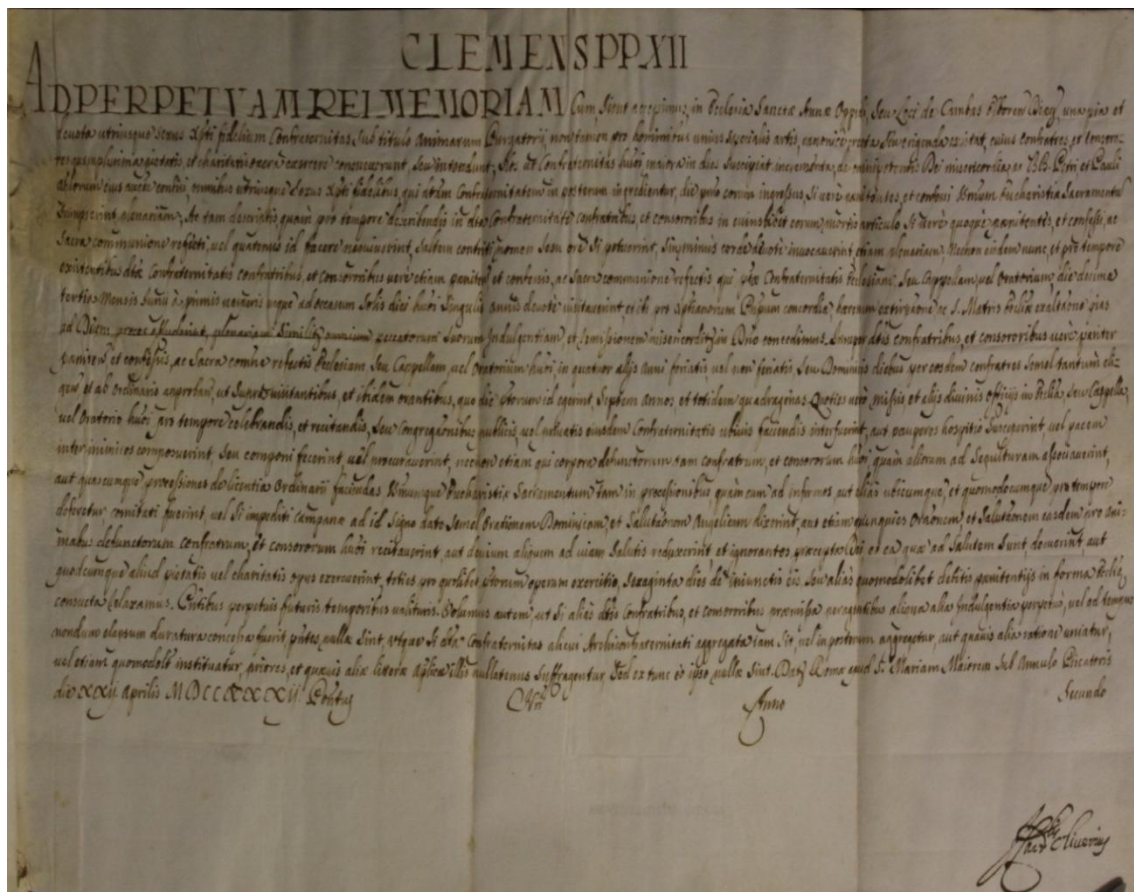 CLEMENS PP XII
AD PERPETVAM REI MEMORIAM Cum Sicut accepimus in Ecclesia Sanctæ Annæ seu Loci de una pia et
devota utriusque sexus Xpti fidelium Confraternitas sub titulo Animarum Purgatorii non tamen pro hominibus unius specialis artis canonice erecta seu erigenda existat, cuius Confratres et consoro-
res quamplurima pietatis et charitatis opera exercere consueverunt seu intendunt; Nos ut Confraternitas huiõi maiora in dies suscipiat incrementa, de omnipotentis Dei misericordia, ac BB. Petri et Pauli
auctte confisi, omnibus utriusque sexus Xpti fidelibus, qui dtam Confraternitatem in posterum ingredientur, die primo eorum ingressus, si vere pænitentes, et confessi Smum Eucharistiæ Sacramentum
sumpserint, plenariam; Ac tam descriptis, quam pro tempore describendis in dta Confraternitate confratribus, et consororibus in cuiuslibet eorum mortis articulo si vere quoque pænitentes, et confessi, ac
Sacra communione refecti, vel quatenus id facere nequiverint, saltem contriti nomen Jesu ore si potuerint, sin minus corde devote invocaverint, etiam plenariam; Necnon eisdem nunc, et pro tempore
existentibus dtæ Confraternitatis confratribus, et consororibus vere etiam et confessis, ac Sacra communione refectis qui Confraternitatis Ecclesiam, seu Cappellam, vel Oratorium die decima
tertia Mensis Junii à primis vesperis usque ad occasum Solis diei huiõi singulis annis devote visitaverint, et ibi pro Xptianorum Principum concordia, hæresum extirpatione ac S. Matris Ecclæ exaltatione pias
ad Deum preces effuderint, plenariam similiter omnium peccatorum suorum Indulgentiam et remissionem misericorditer in Dno concedimus. Insuper dtis confratribus, et consororibus vere pariter
et confessis, ac Sacra comme refectis Ecclesiam seu Cappellam, vel Oratorium huiõi, in quatuor alijs anni feriatis vel non feriatis, seu Dominicis diebus per eosdem confratres semel tantum eli-
gen. et ab ordinario approban. ut supra visitantibus, et ibidem orantibus, quo die ptorum id egerint, septem annos et totidem quadragenas. Quoties vero missis et alijs divinis officijs in Ecclia, seu Cappella,
vel Oratorio huiõi pro tempore celebrandis, et recitandis, seu Congregationibus publicis, vel privatis eiusdem Confraternitatis ubivis faciendis interfuerint, aut pauperes hospitio susceperint, vel pacem
inter inimicos composuerint, seu componi fecerint, vel procuraverint, necnon etiam qui corpora defunctorum tam confratrum, et consororum huiõi, quam aliorum ad sepulturam associaverint,
aut quascunque processiones de licentia Ordinarii faciendas Smumque Eucharistiæ Sacramentum tam in processionibus quam cum ad infirmos aut alias ubicumque, et quomodocumque pro tempore
deferetur comitati fuerint, vel si impediti campanæ ad id signo dato semel Orationem Dominicam, et Salutationem Angelicam dixerint, aut etiam quinquies Orationem, et Salutationem easdem pro ani-
mabus defunctorum confratrum, et consororum huiõi recitaverint, aut devium aliquem ad viam salutis reduxerint et ignorantes præcepta Dei et ea quæ ad salutem sunt docuerint, aut
quodcumque aliud pietatis vel charitatis opus exercuerint, toties pro quolibet ptorum operum exercitio, sexaginta dies de iniunctis eis, seu alias quomodolibet debitis pænitentijs in forma Ecclæ
consueta relaxamus. Pntibus perpetuis futuris temporibus valituris. Volumus autem, ut si alias dtis Confratribus, et consororibus præmissa peragentibus aliqua alia Indulgentia perpetuo, vel ad tempus
nondum elapsum duratura concessa fuerit, pntes nullæ sint, utque si dta Confraternitas alicui Archiconfraternitati aggregata iam sit, vel in posterum aggregetur aut quavis alia ratione uniatur,
vel etiam quomodolt instituatur, priores, et quævis aliæ literæ Aplicæ illis nullatenus suffragentur, sed ex tunc eo ipso nullæ sint. Dat. Romæ apud S. Mariam Maiorem sub Annulo Piscatoris
die XXII Aprilis MDCCXXXII. Pontus Nri Anno Secundo